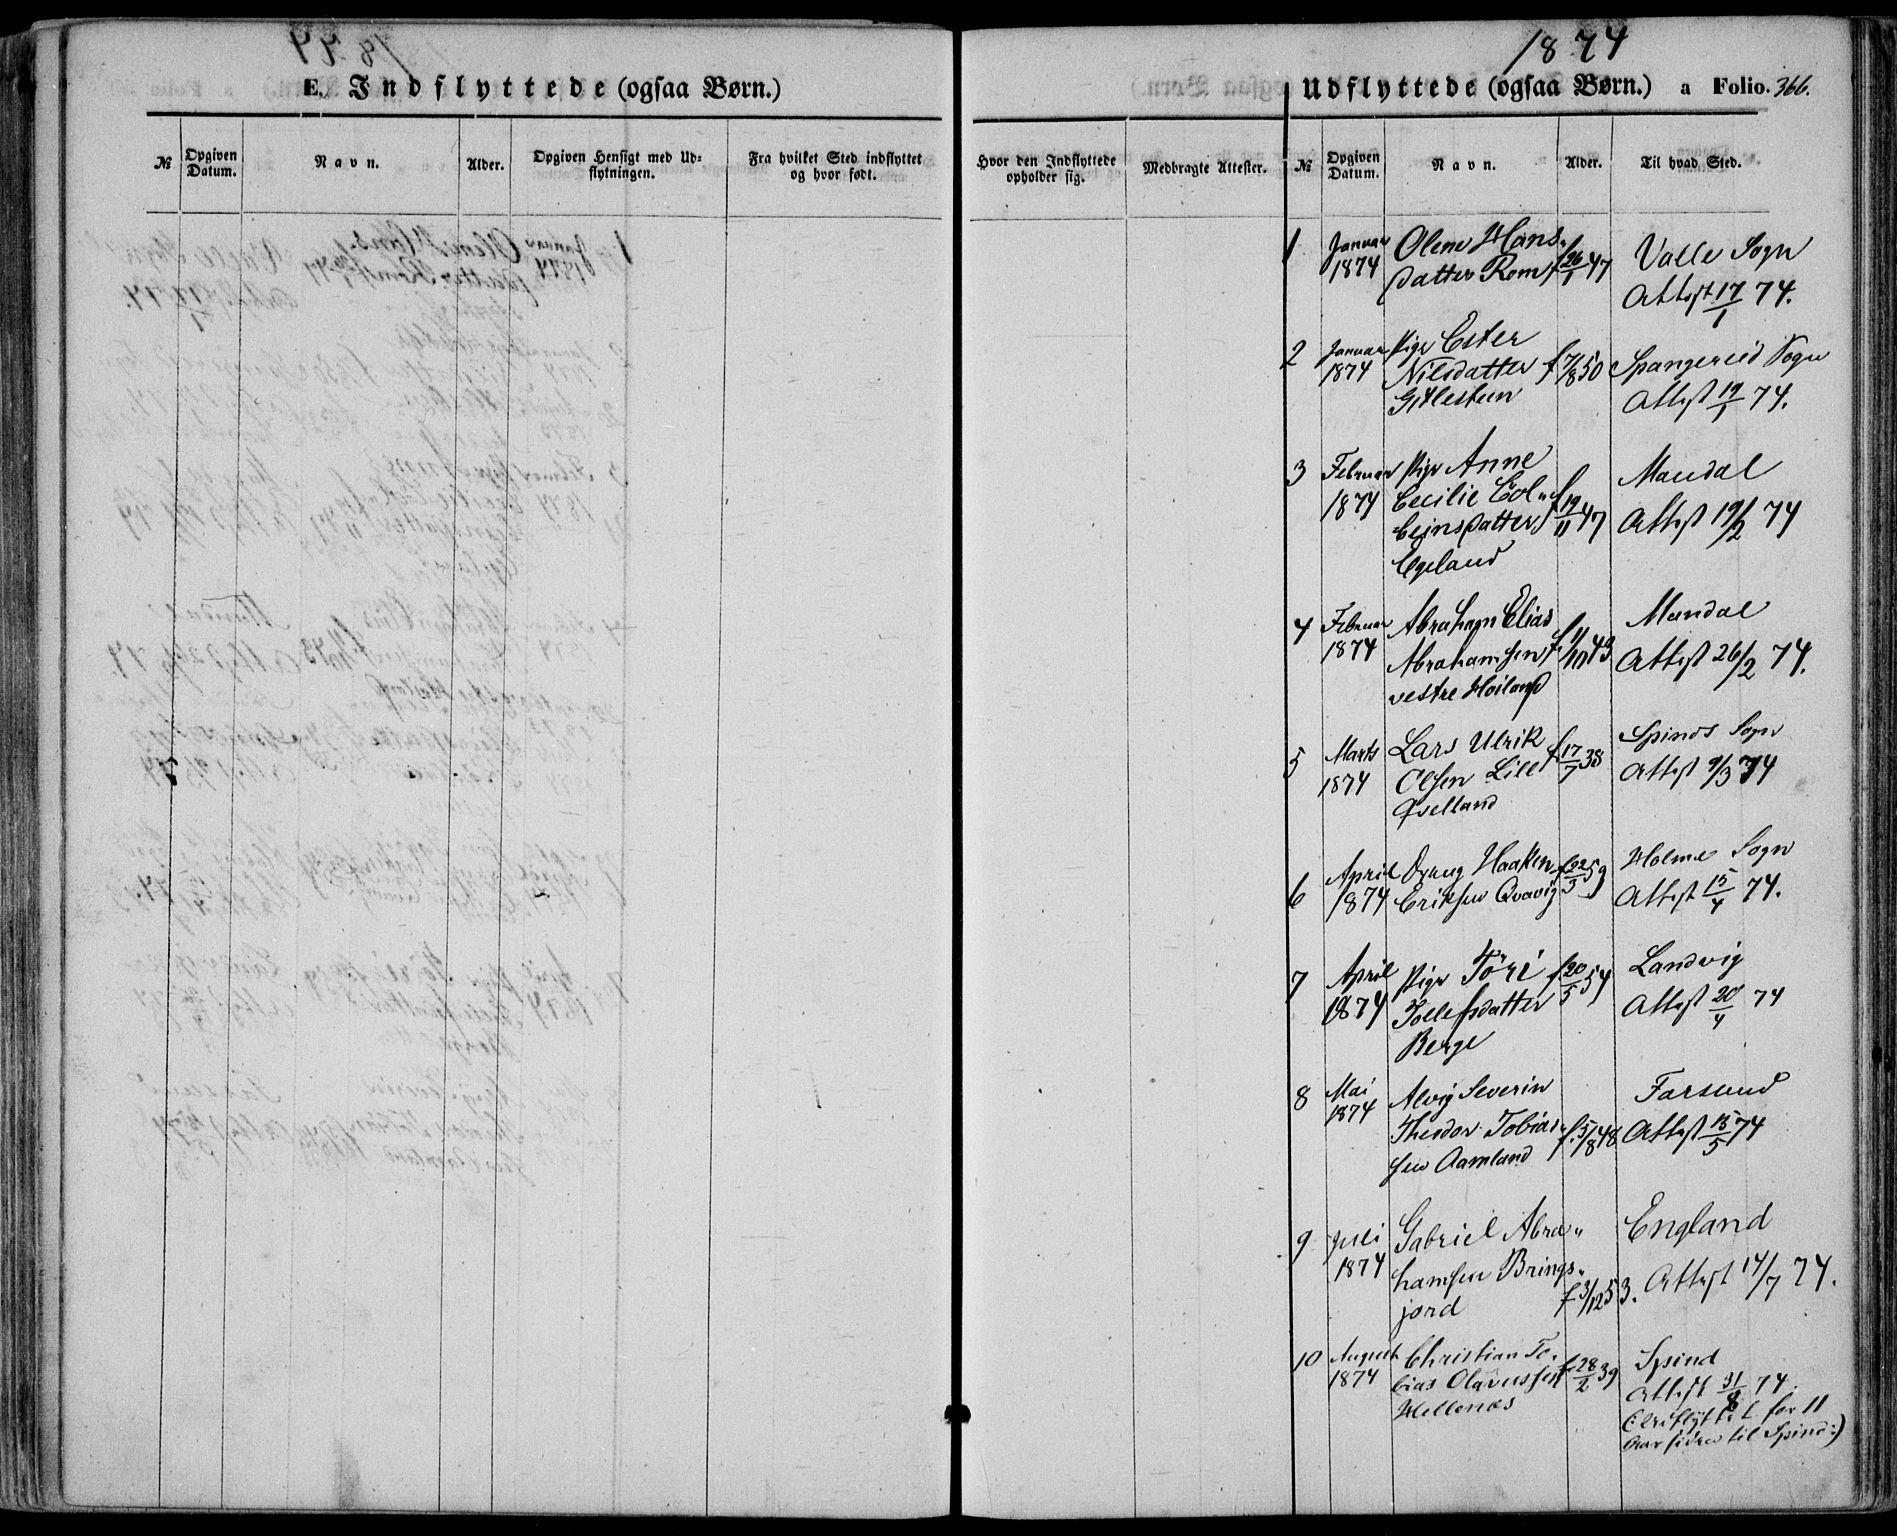 1874
E. Indflyttede (ogsaa Børn.)
Udflyttede (ogsaa Børn.) a Folio. 366.
№ Opgiven Datum. Navn. Alder. Opgiven Hensigt med Udflytningen. Fra hvilket Sted indflyttet og hvor født.
Hvor den Indflyttede opholder sig. Medbragte Attester. № Opgiven Datum. Navn. Alder. Til hvad Sted.
1 Januar Olene Hans-
1874 datter Rom f 26/1 47 Valle Sogn
Attest 17/1 74.
2 Januar Pige Ester
1874 Nilsdatter f 7/8 50 Spangereid Sogn
Gitlesteen Attest 19/1 74.
3 Februar Pige Anne Mandal
1874 Cecilie Col- f 19/11 47 Attest 19/2 74
beinsdatter
Egeland
4 Februar Abraham Elias Mandal
1874 Abrahamsen f 11/10 43 Attest 26/2 74.
vestre Høiland
5 Marts Lars Ulrik f 17/7 38 Spinds Sogn
1874 Olsen Lille Attest 9/3 74
Qvelland
6 April Haaken f 22/3 59 Holme Sogn
1874 Eriksen Qvavig Attest 15/4 74.
7 April Pige Töri f 20/5 54 Landvig
1874 Tollefsdatter Attest 20/4 74
Berge
8 Mai Alvig Severin Farsund
1874 Theodor Tobias-
sen Aamland f. 5/8 48 Attest 13/5 74
9 Juli Gabriel Abra- England
1874 hamsen Brings-
jord f 3/12 53. Attest 14/7 74.
10 August Christian To- f 28/2 39 Spind
1874 bias Olavussen Attest 31/8 74.
Hellenæs
for 11
Aar siden til Spind:)